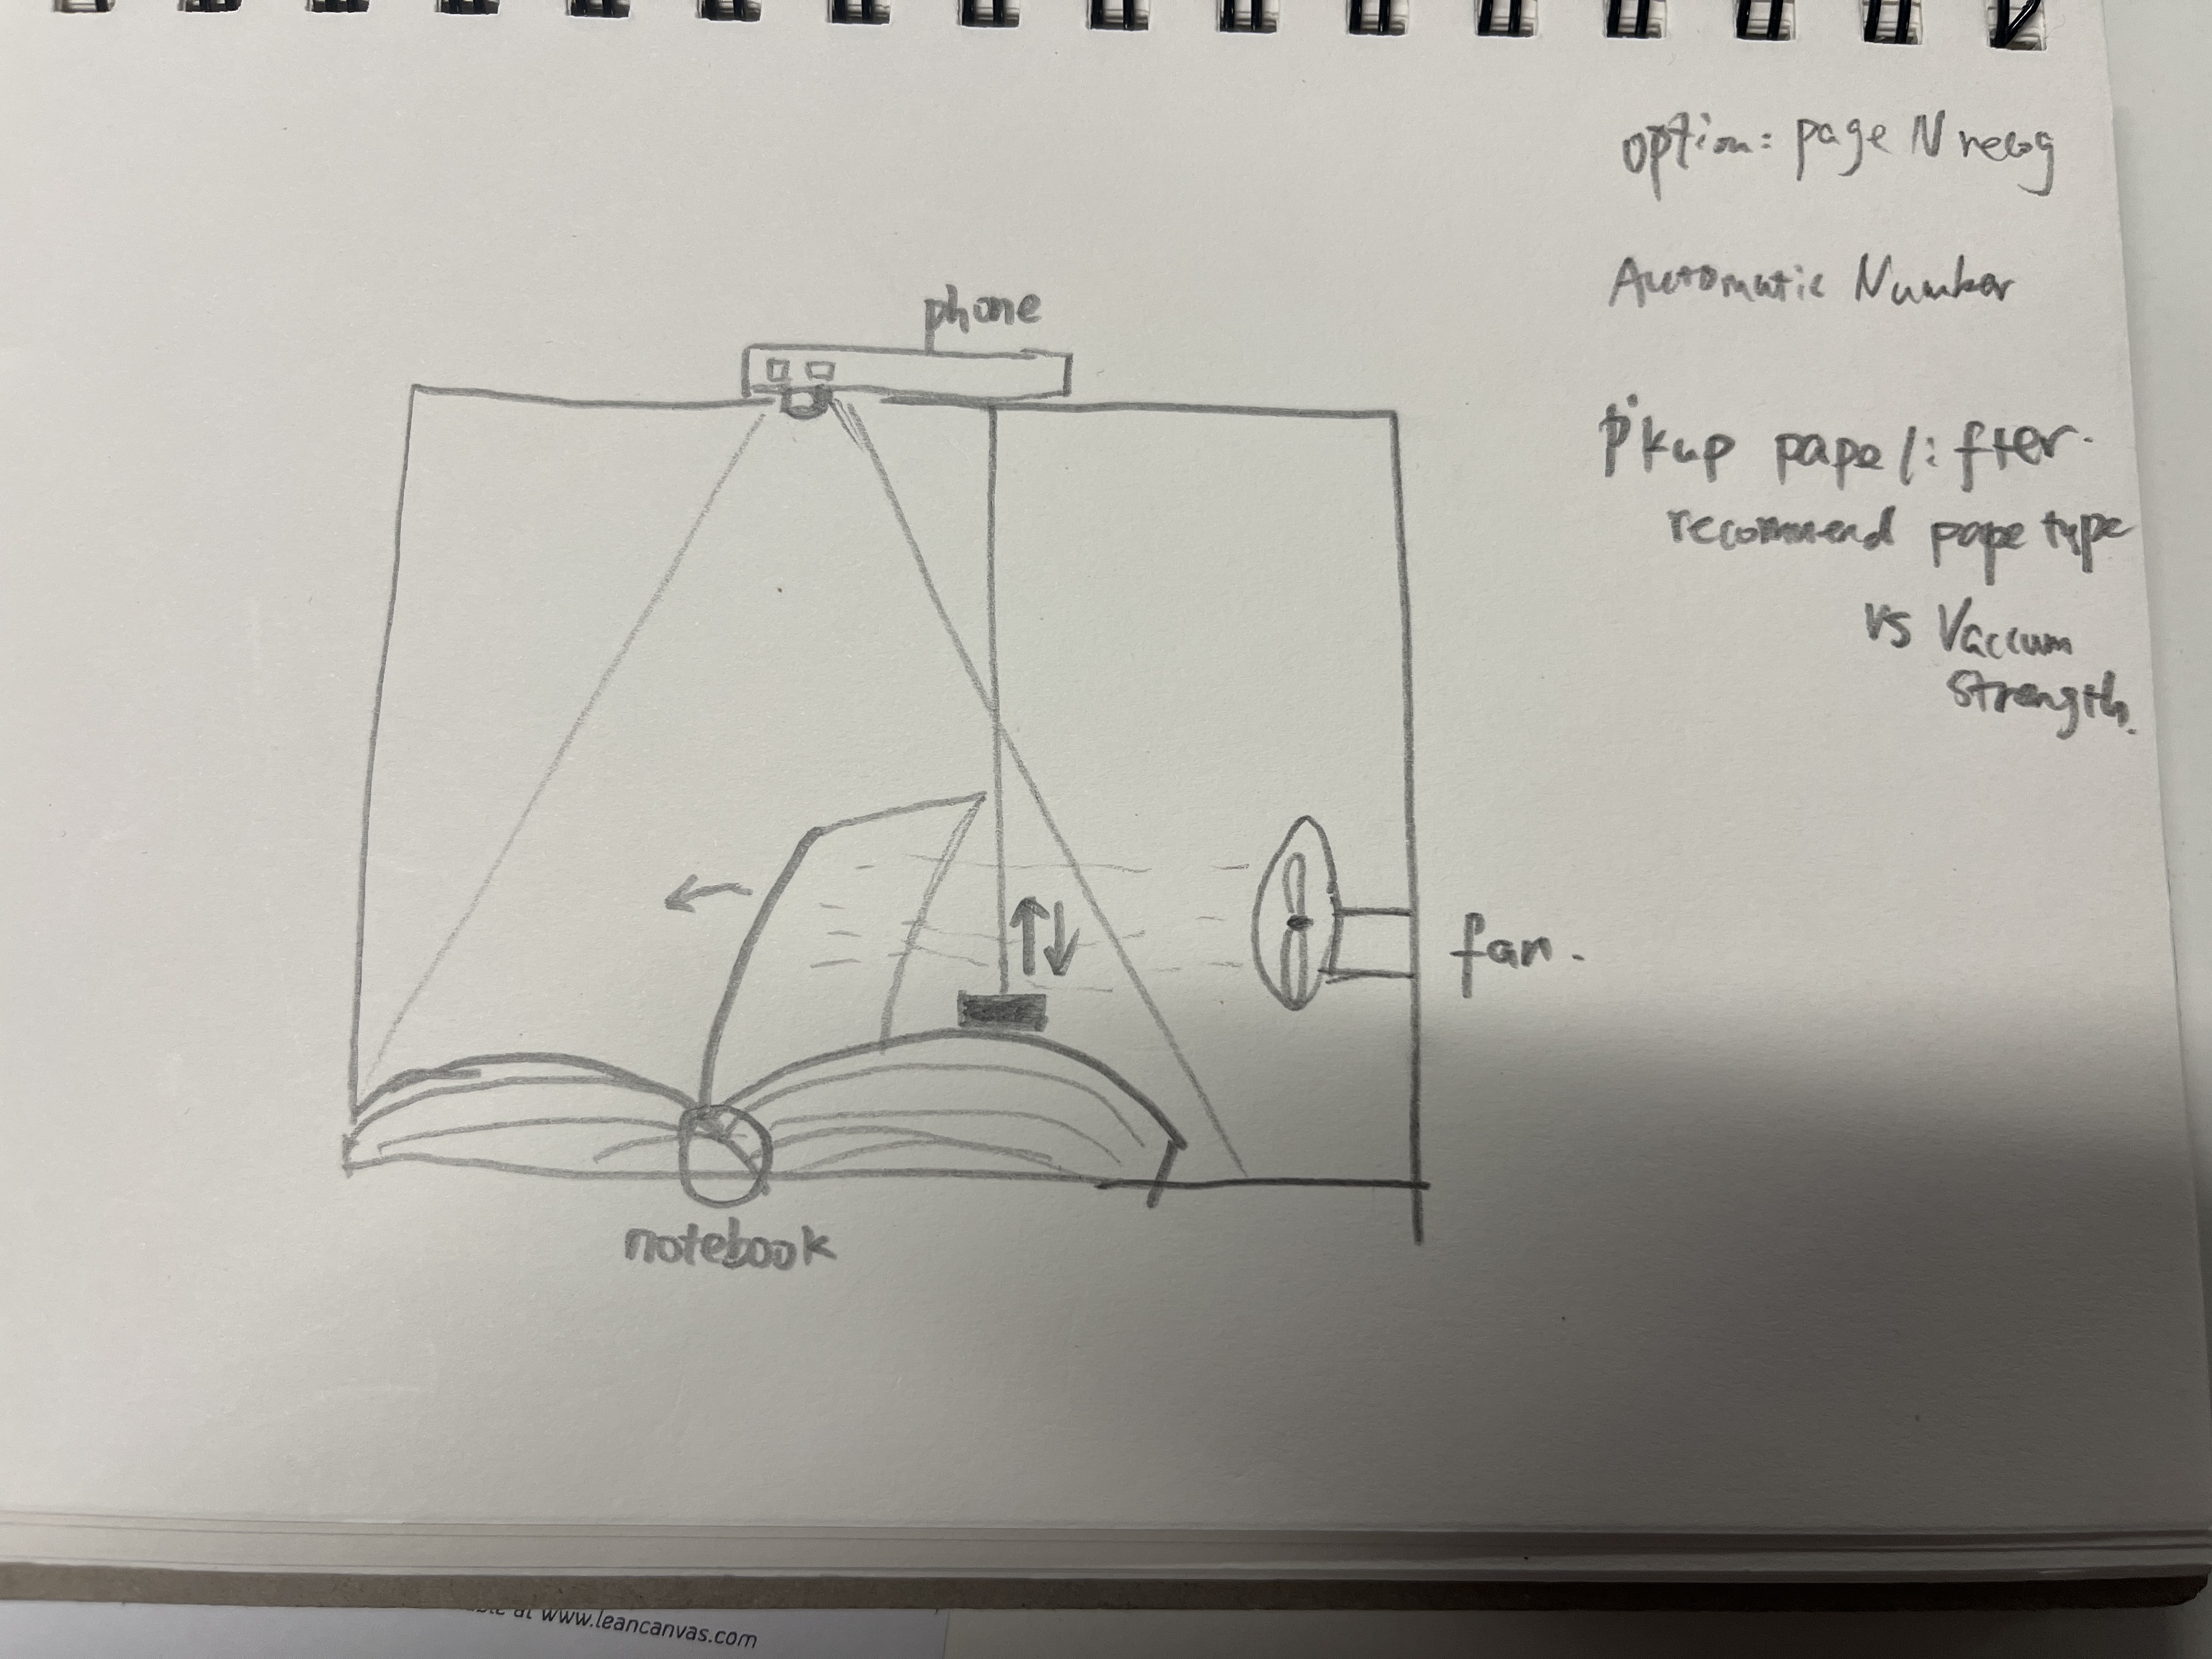 option: page N recog
Automatic Number
pikup pape lifter.
recommend pape type
vs Vaccum
strength.
phone
fan.
notebook
at www.leancanvas.com